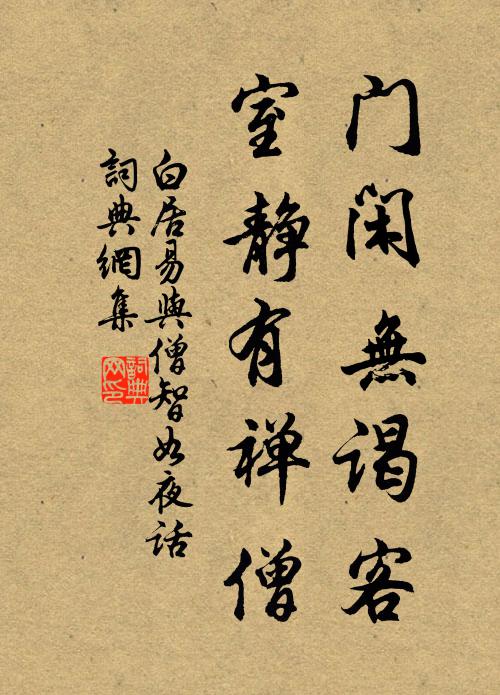 门闲無谒客
室静有禅僧
白居易與僧智如夜话
詞典網集
詞典网印